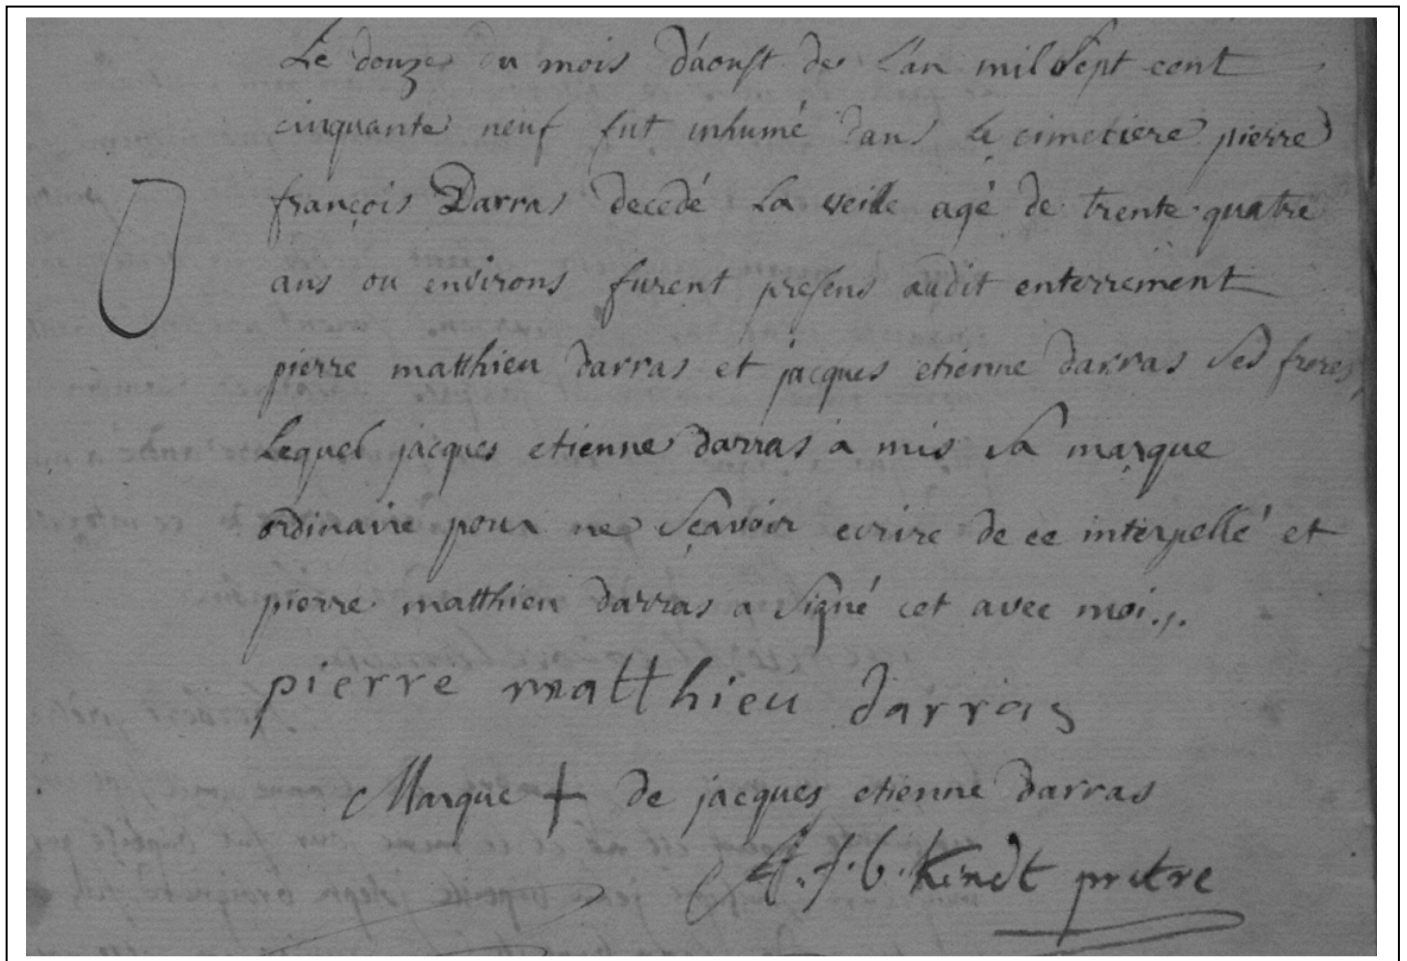 Le douze du mois d'aoust de l'an mil Sept cent
cinquante neuf fut inhumé dans le cimetiere pierre
françois Darras decedé la veille agé de trente quatre
ans ou environs furent presens audit enterrement
pierre matthieu darras et jacques etienne darras Ses freres,
Lequel jacques etienne darras a mis Sa marque
ordinaire pour ne Sçavoir ecrire de ce interpellé et
pierre matthieu darras a Signé cet avec moi.,.
pierre matthieu darras
Marque + de jacques etienne darras
f. b. Kindt pretre